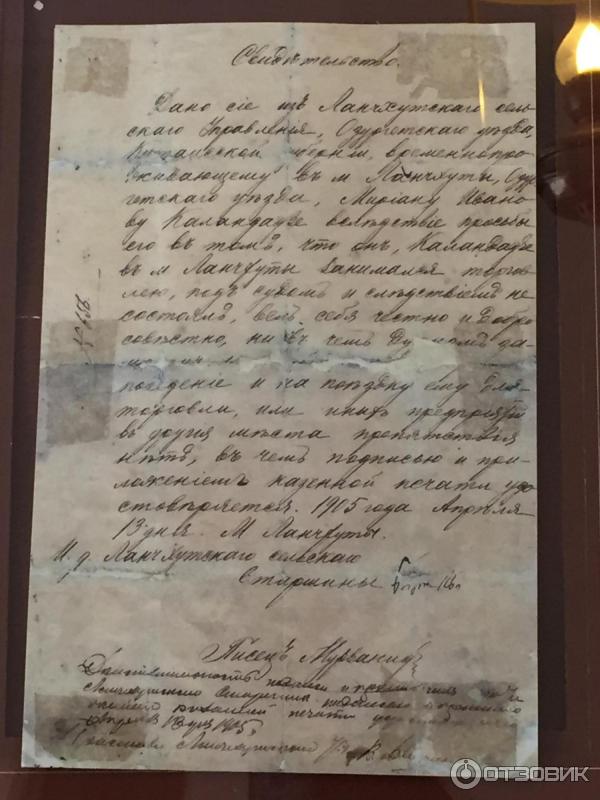 Свидѣтельство.
Дано сіе изъ Ланчхутскаго сель-
скаго Управленія, Озургетскаго уѣзда
Кутаисской губерніи, временнопро-
живающему въ м Ланчхуты, Озур-
гетскаго уѣзда, Мириану Ивано-
ву Каландадзе вслѣдствіе просьбы
его въ томъ, что онъ, Каландадзе
въ м Ланчхуты занимался торгов-
лею, подъ судомъ и слѣдствіемъ не
состоялъ, велъ себя честно и добро-
совѣстно, ни въ чемъ
поведеніе и на поѣздку ему для
торговли, или иныхъ предпріятій
въ другія мѣста препятствія
нѣтъ, въ чемъ подписью и при-
ложеніемъ казенной печати удо-
стовѣряется. 1905 года Апрѣля
13 дня. М Ланчхуты.
И. д. Ланчхутскаго сельскаго
Старшины
Писецъ
Дѣйствительность подписи и
Ланчхутскаго Старшины
печати
Апрѣля 13 дня 1905 г.
Ланчхутскаго
№ 456.
ОТЗОВИК